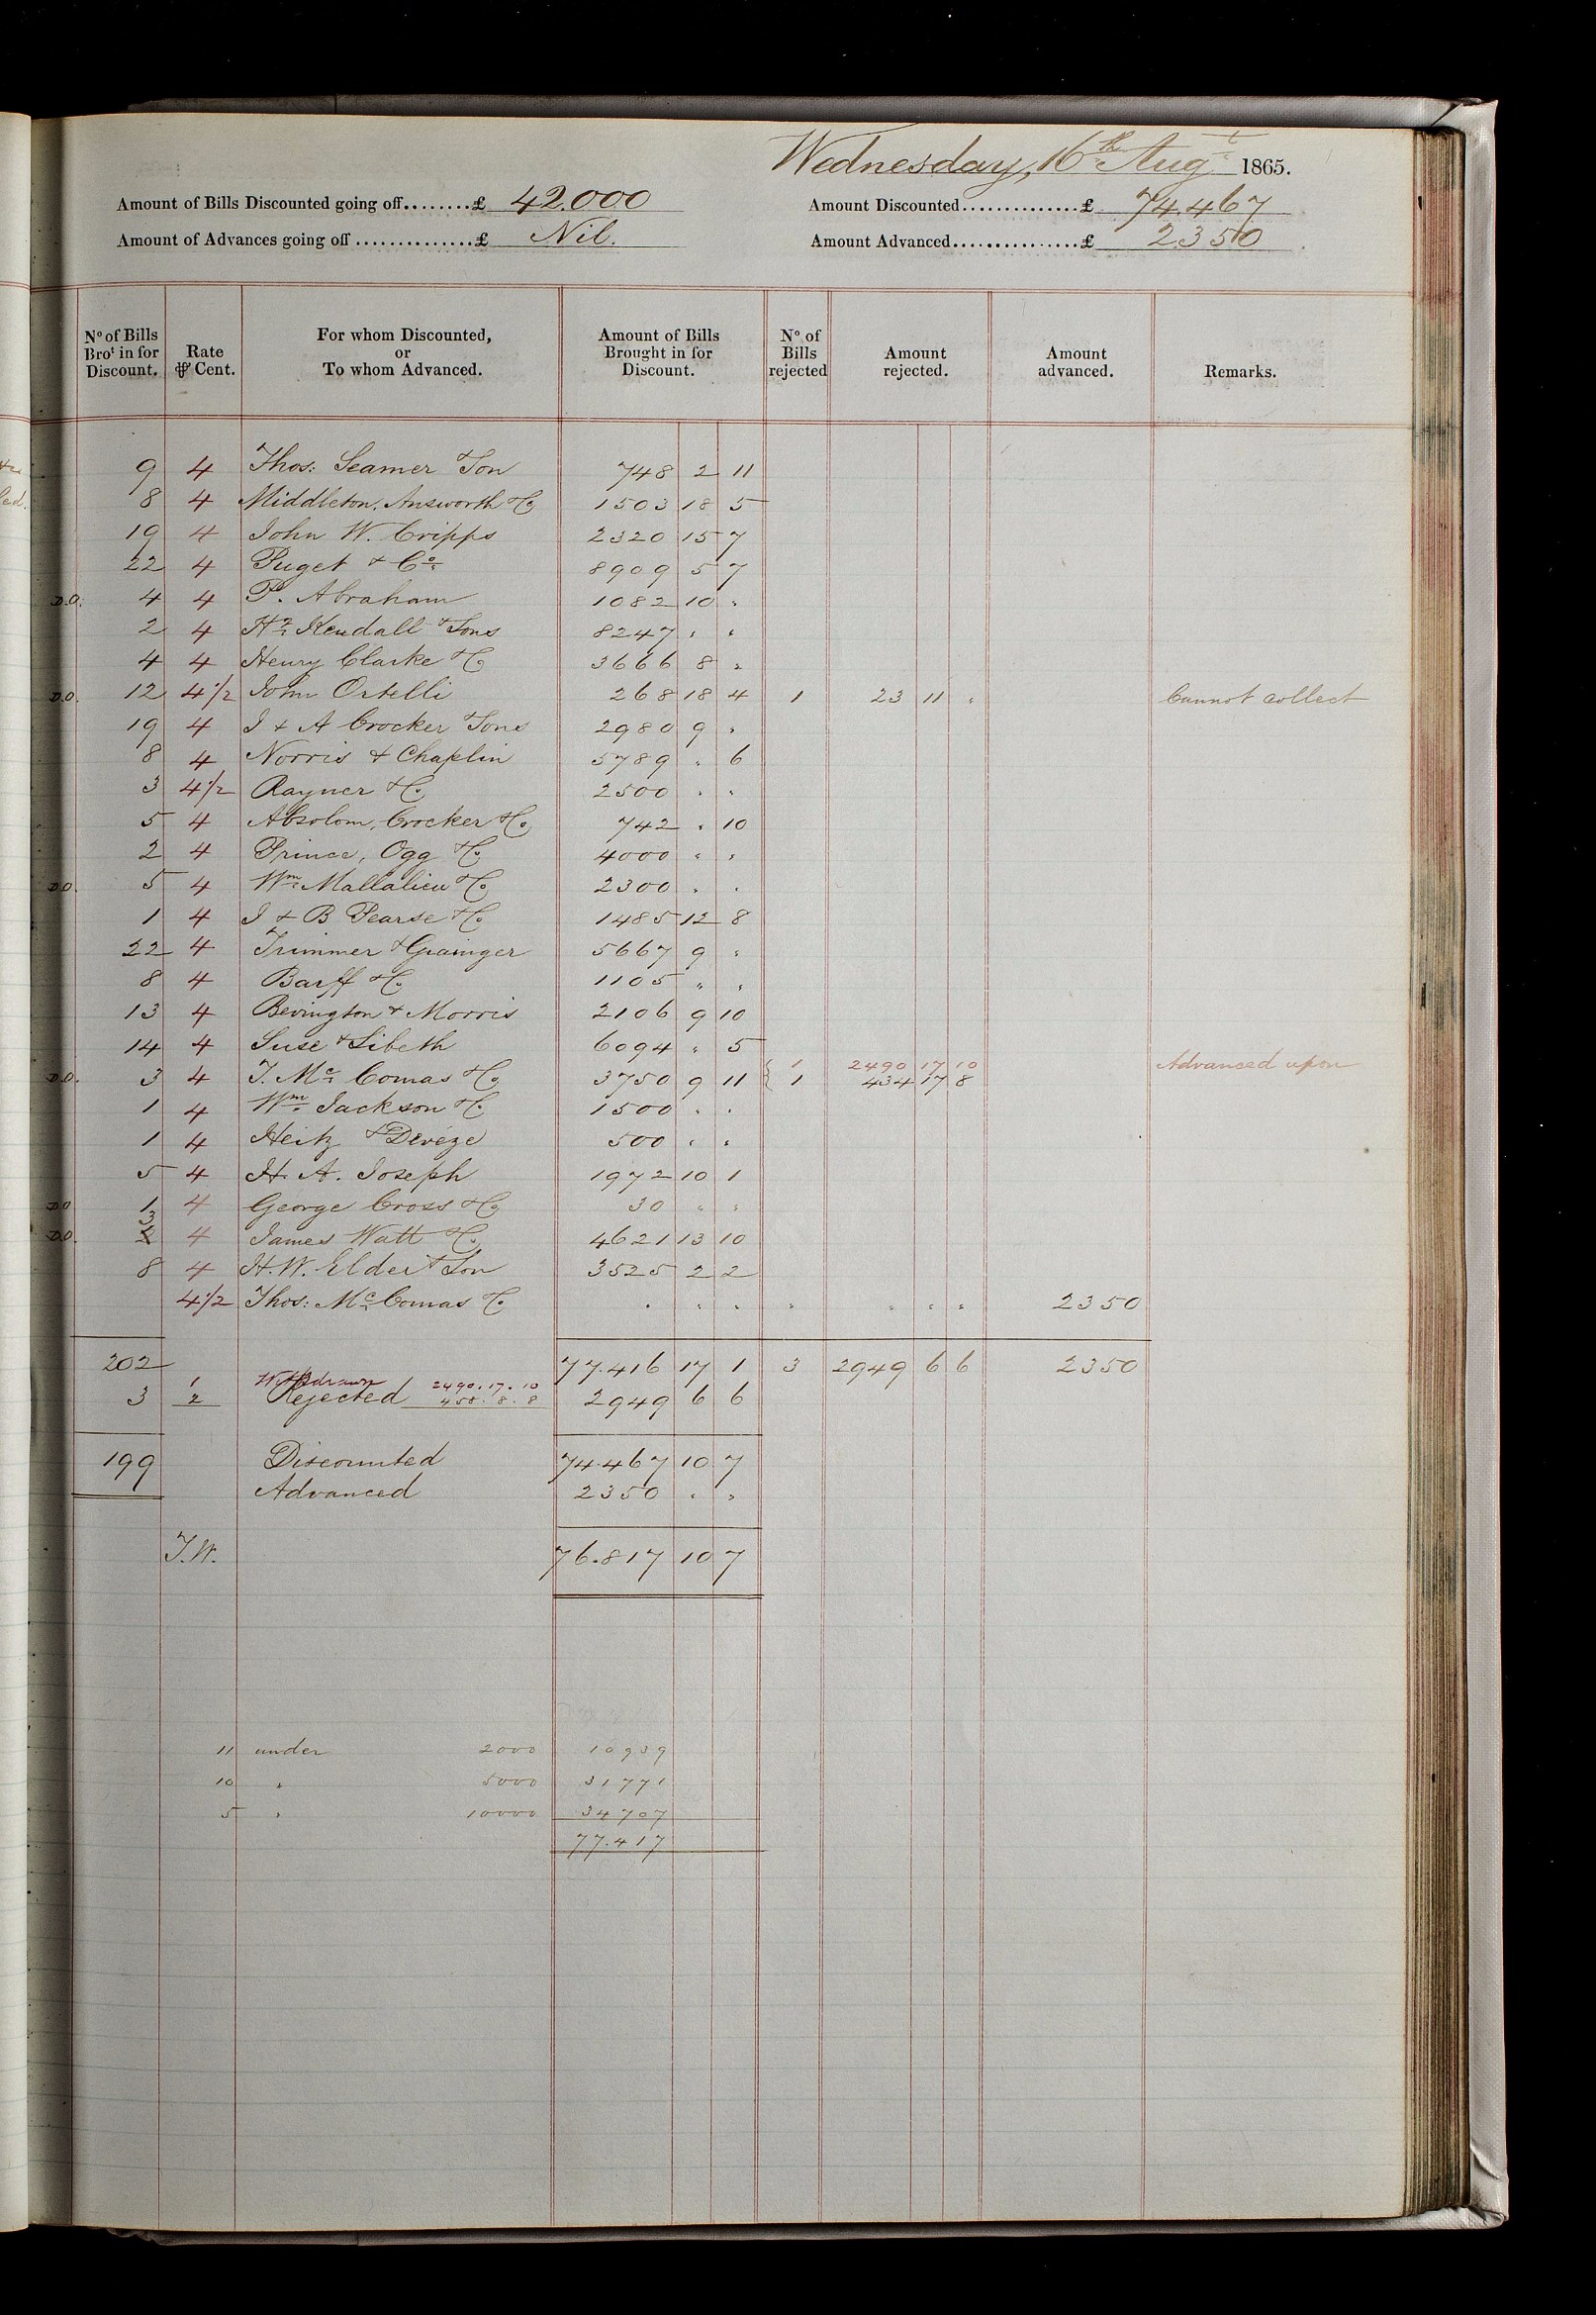 Wednesday, 16th Augt 1865.
Amount of Bills Discounted going off........£ 42.000 Amount Discounted..............£ 74.467
Amount of Advances going off...............£ Nil. Amount Advanced................£ 2350
No of Bills Brot in for Discount. Rate ⅌ Cent. For whom Discounted, or To whom Advanced. Amount of Bills Brought in for Discount. No of Bills rejected Amount rejected. Amount advanced. Remarks.
9 4 Thos: Seamer & Son 748 2 11
8 4 Middleton, Answorth & Co 1503 18 5
19 4 John W. Cripps 2320 15 7
22 4 Puget & Co 8909 5 7
D.O. 4 4 P. Abraham 1082 10 "
2 4 Hy Kendall & Sons 8247 " "
4 4 Henry Clarke & Co 3666 8 "
D.O. 12 4 1/2 John Ortelli 268 18 4 1 23 11 " Cannot collect
19 4 I & A Crocker & Sons 2980 9 "
8 4 Norris & Chaplin 5789 " 6
3 4 1/2 Rayner & Co 2500 " "
5 4 Absolom, Crocker & Co 742 " 10
2 4 Prince, Ogg & Co 4000 " "
D.O. 5 4 Wm Mallalieu & Co 2300 " "
1 4 I & B Pearse & Co 1485 12 8
22 4 Trimmer & Grainger 5667 9 "
8 4 Barff & Co 1105 " "
13 4 Bevington & Morris 2106 9 10
14 4 Suse & Sibeth 6094 " 5
1 2490 17 10 Advanced upon
D.O. 3 4 T. Mc Comas & Co 3750 9 11 1 434 17 8
1 4 Wm Jackson & Co 1500 " "
1 4 Heitz & Devéze 500 " "
5 4 H. A. Joseph 1972 10 1
D.O 1 4 George Cross & Co 30 " "
D.O. 3 4 James Watt & Co 4621 13 10
8 4 H. W. Elder & Son 3525 2 2
4 1/2 Thos: Mc Comas & Co " " " " " " " 2350
202 77.416 17 1 3 2949 6 6 2350
1 Withdrawn 2490.17.10
3 2 Rejected 458.8.8 2949 6 6
199 Discounted 74.467 10 7
Advanced 2350 " "
T.W. 76.817 10 7
11 under 2000 10939
10 " 5000 31771
5 " 10000 34707
77.417